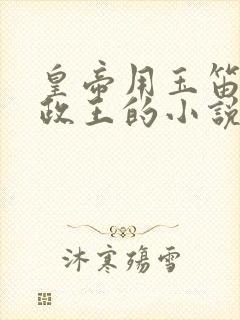 皇帝用玉笛
政王的小说
沐寒殇雪